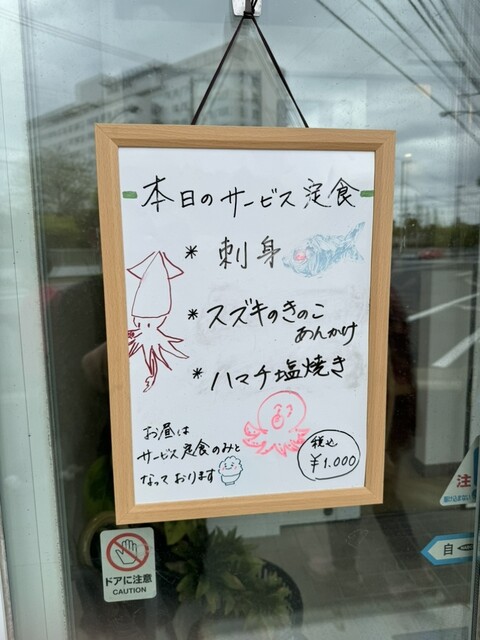 本日のサービス定食
* 刺身
* スズキのきのこ
あんかけ
* ハマチ塩焼き
お昼は
サービス定食のみと
なっております
税込
¥1.000
ドアに注意
CAUTION
注
自